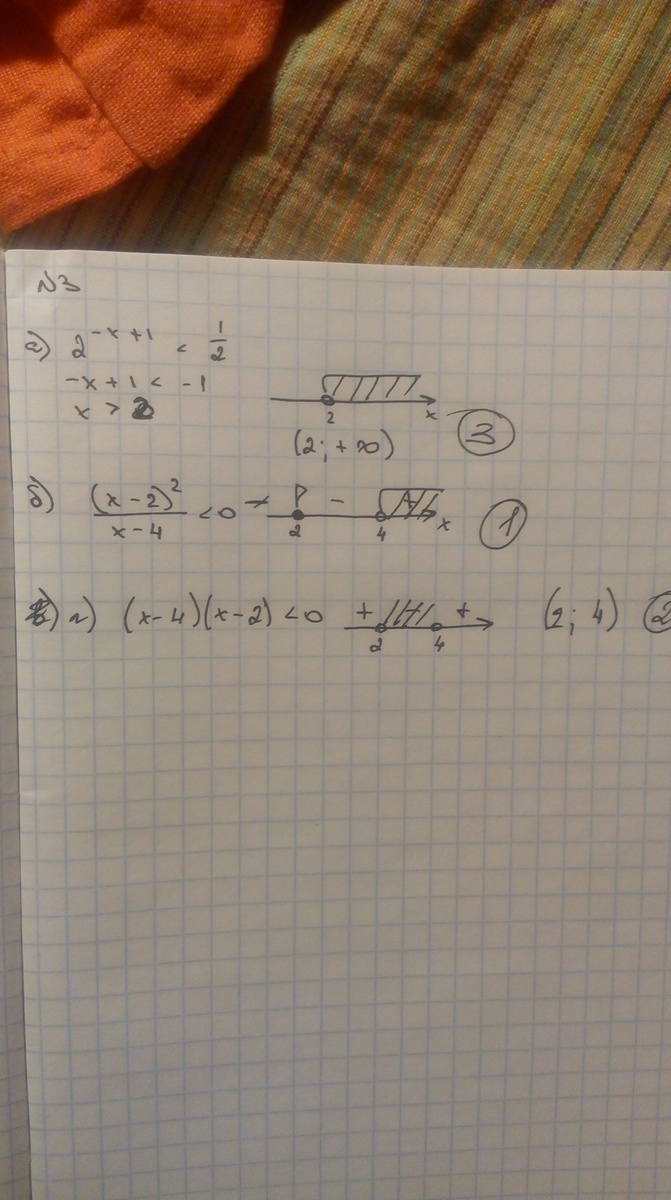 №3
а) 2^(-x+1) < 1/2
-x+1 < -1
x > 2
2 x
(2; +∞) 3
б) (x-2)²/(x-4) < 0 - 2 - 4 + x 1
г) (x-4)(x-2) < 0 + 2 4 + (2; 4) 2